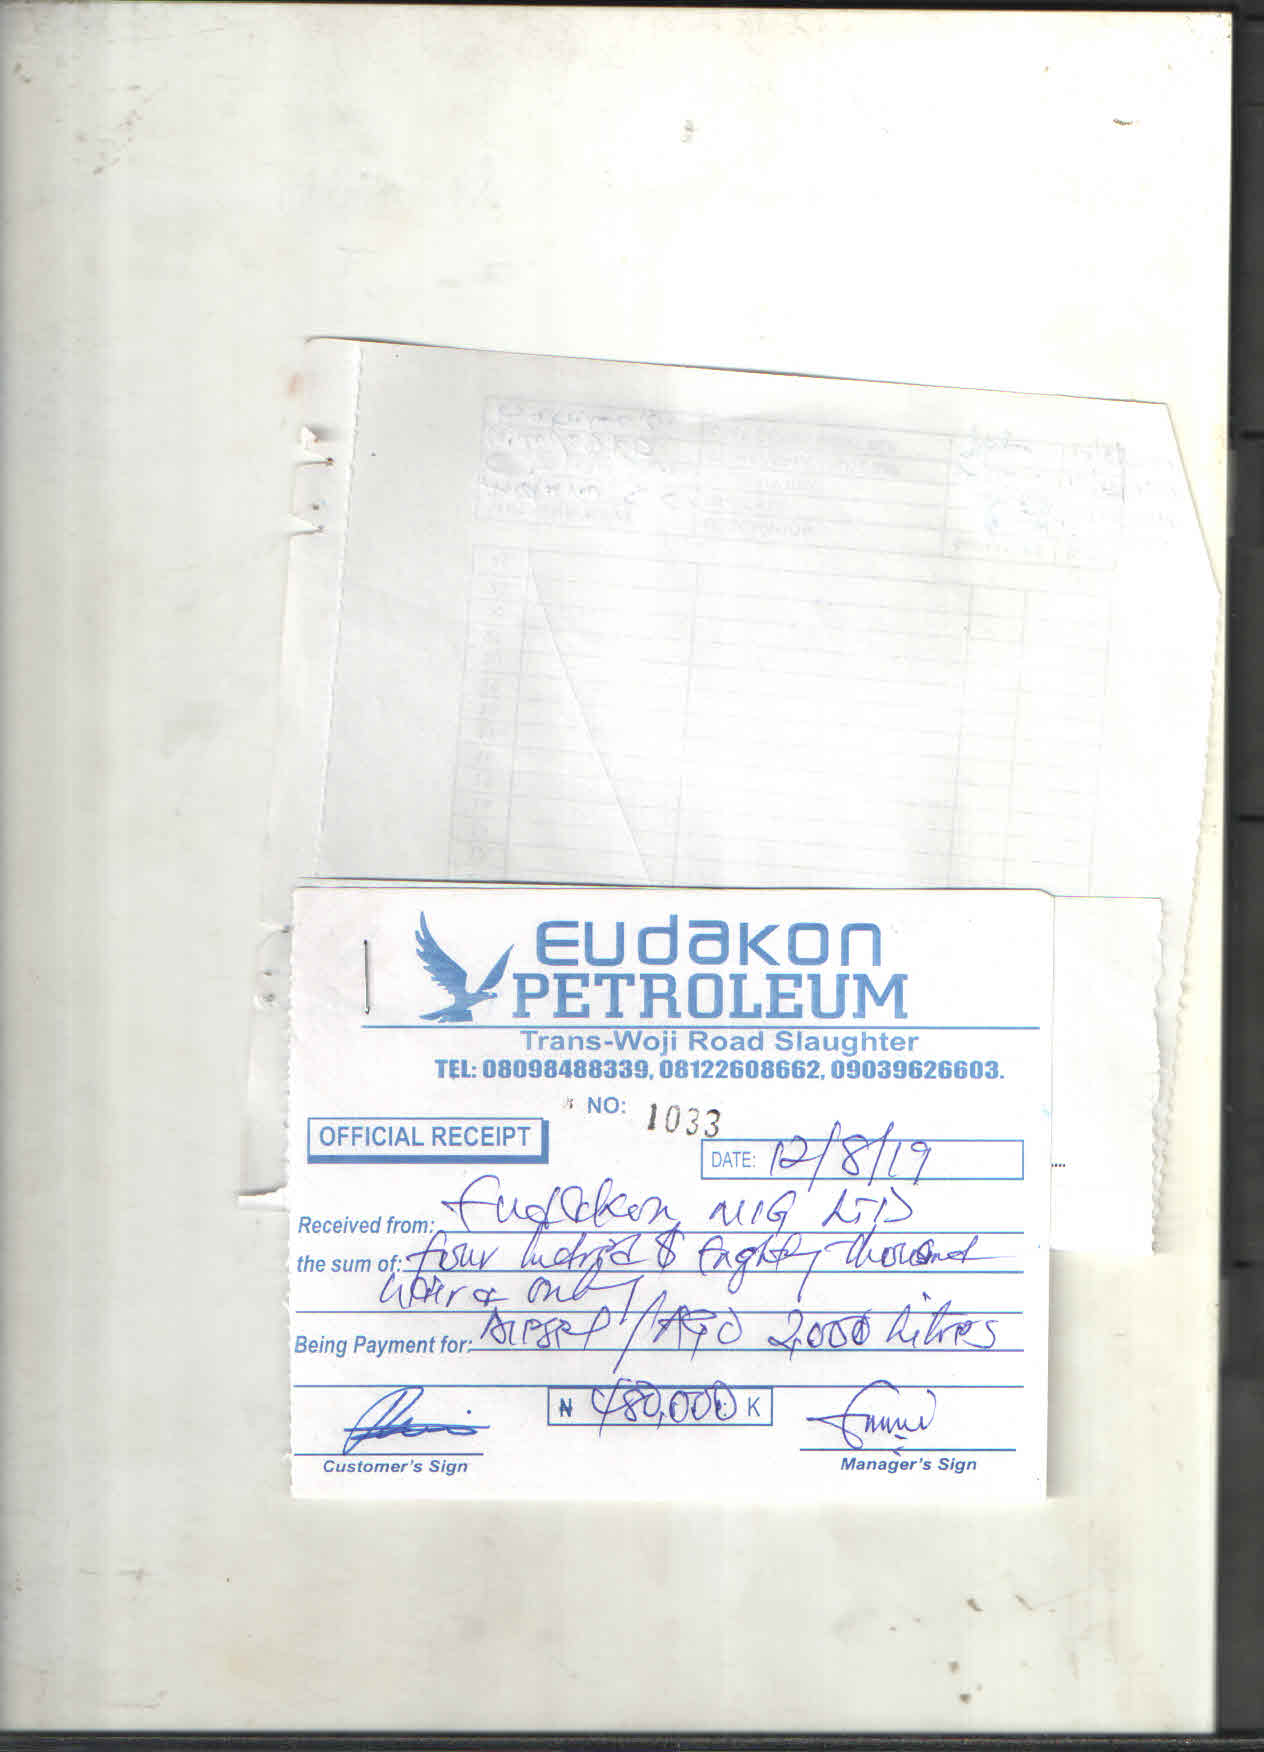 Eudakon
PETROLEUM
Trans-Woji Road Slaughter
TEL: 08098488339, 08122608662, 09039626603.
NO: 1033
OFFICIAL RECEIPT
DATE: 12/8/19
Received from: Eudakon NIG LTD
the sum of: four hundred & Eighty thousand
Naira only
Being Payment for: Diesel/AGO 2,000 Litres
₦ 480,000 K
Customer's Sign
Manager's Sign